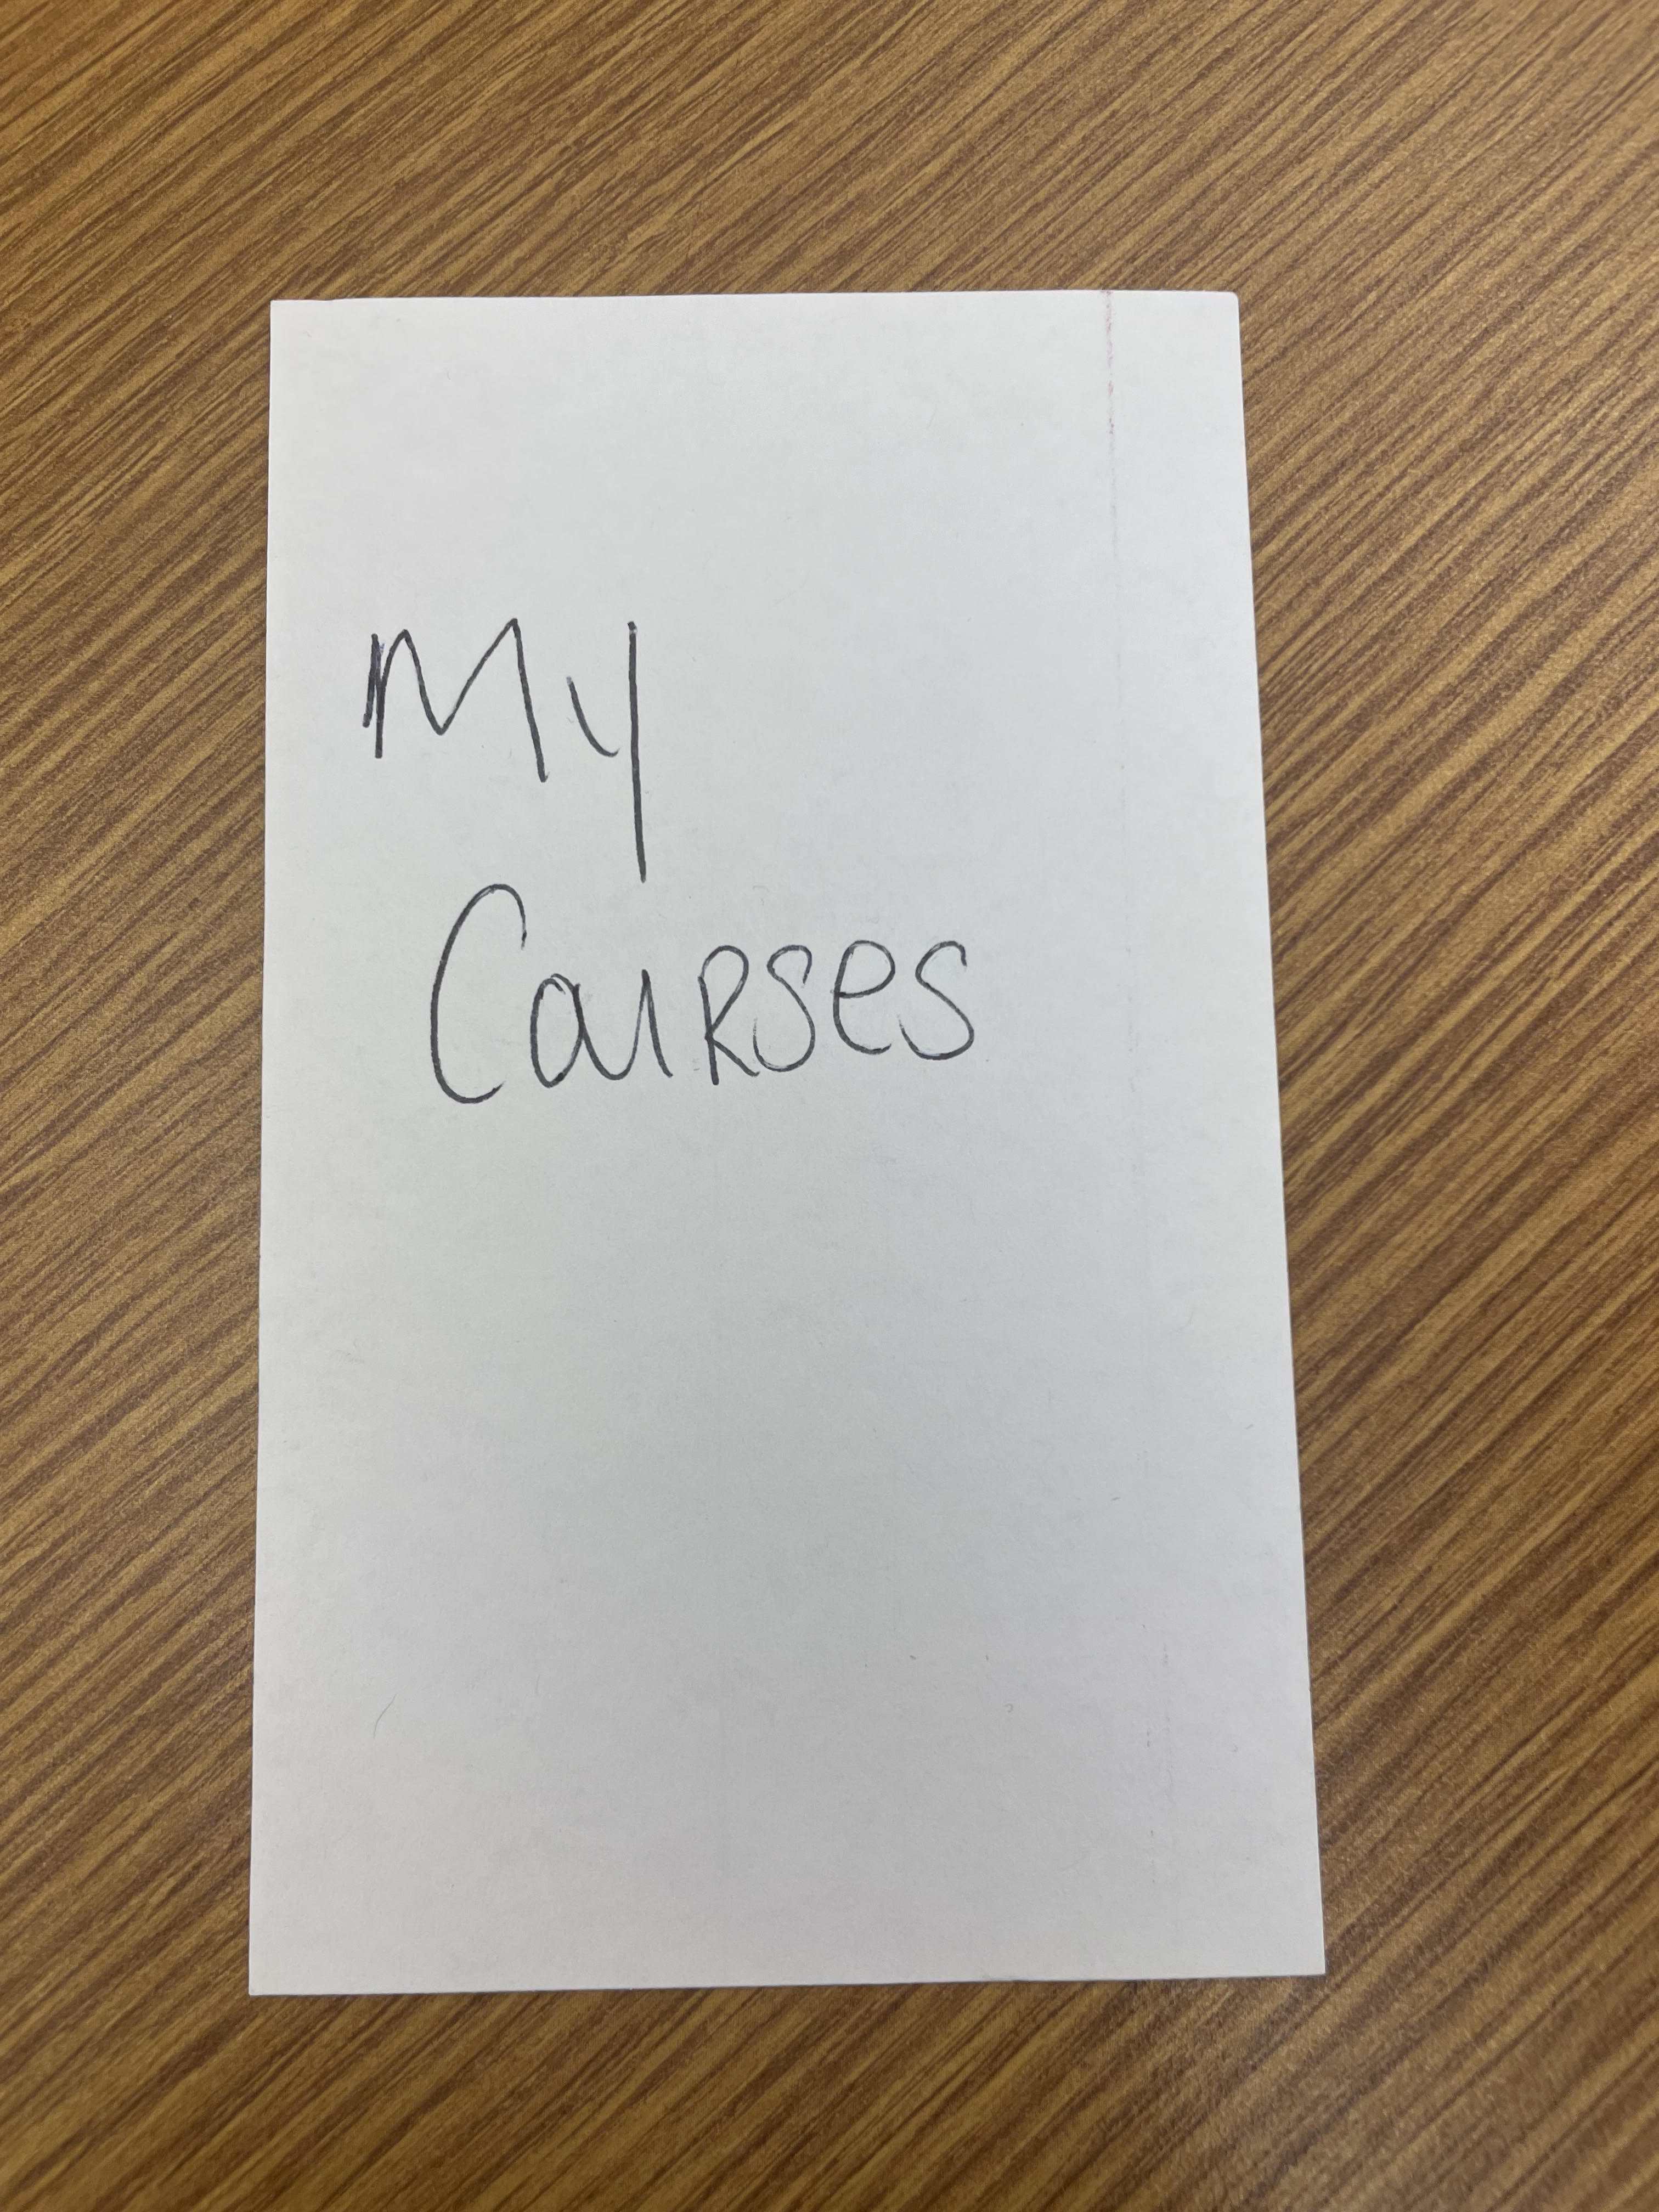 My
Courses